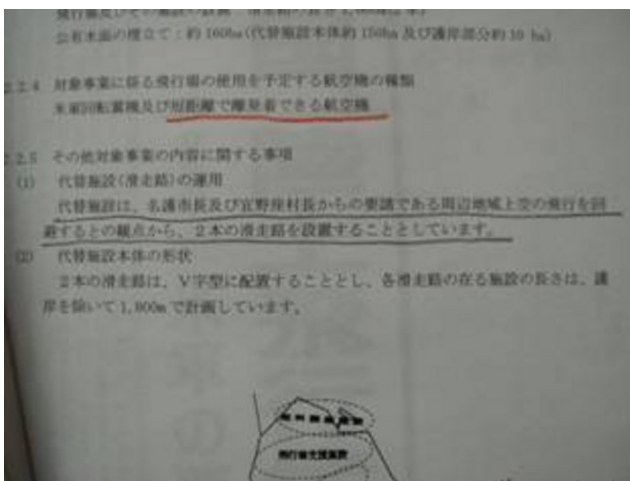 公有水面の埋立て：約160ha(代替施設本体約150ha及び護岸部分約10 ha)
2.2.4 対象事業に係る飛行場の使用を予定する航空機の種類
米軍回転翼機及び短距離で離発着できる航空機
2.2.5 その他対象事業の内容に関する事項
(1) 代替施設(滑走路)の運用
代替施設は、名護市長及び宜野座村長からの要請である周辺地域上空の飛行を回
避するとの観点から、2本の滑走路を設置することとしています。
(2) 代替施設本体の形状
2本の滑走路は、V字型に配置することとし、各滑走路の在る施設の長さは、護
岸を除いて1,800mで計画しています。
飛行場支援施設